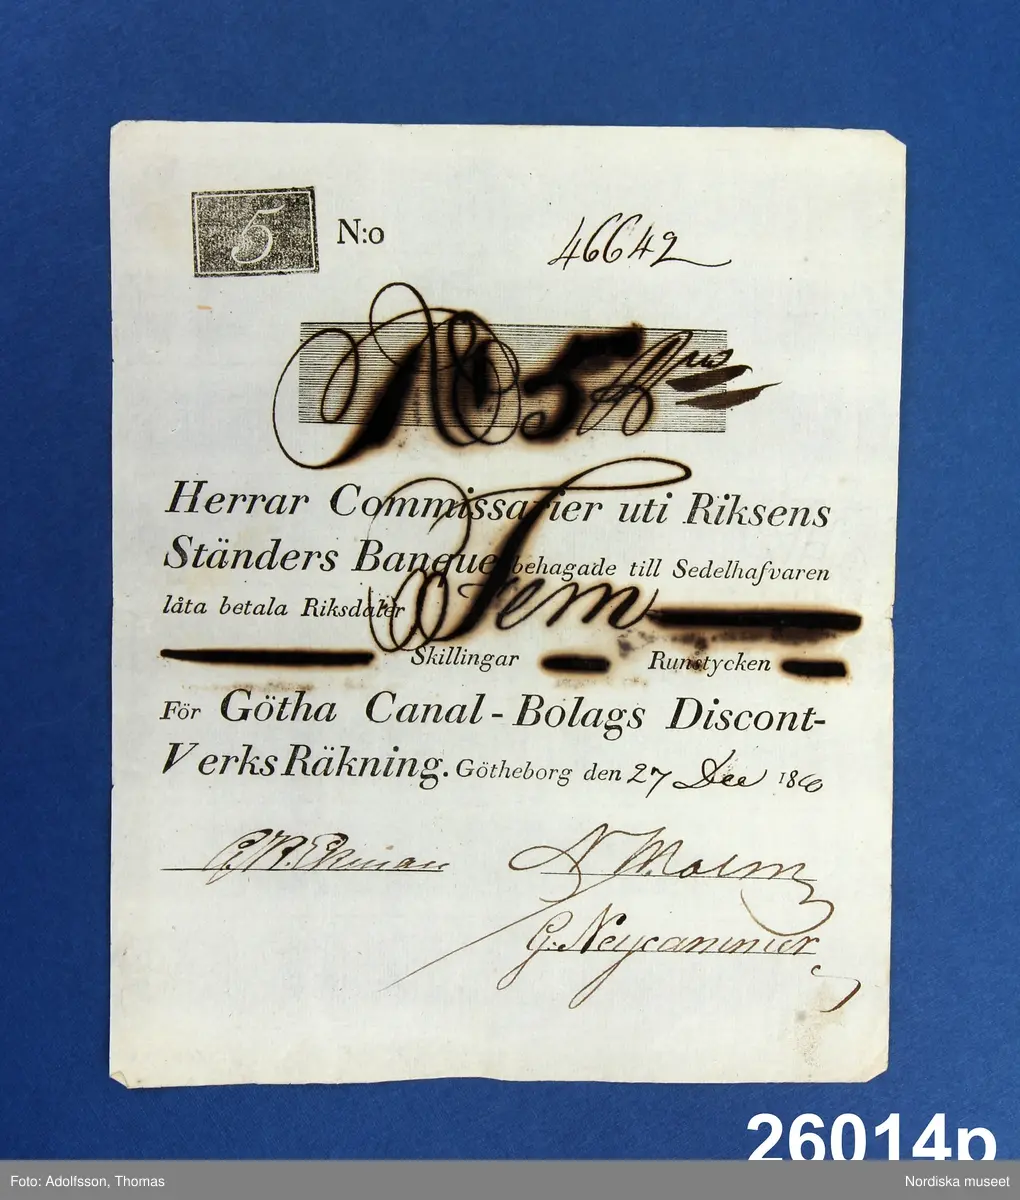 5 N:o 46642
5
Herrar Commissarier uti Riksens
Ständers Banque behagade till Sedelhafvaren
låta betala Riksdaler Fem
Skillingar Runstycken
För Götha Canal-Bolags Discont-
Verks Räkning. Götheborg den 27 Dec 18
Ekman Malm
G. Neycammer
26014p
Foto: Adolfsson, Thomas Nordiska museet